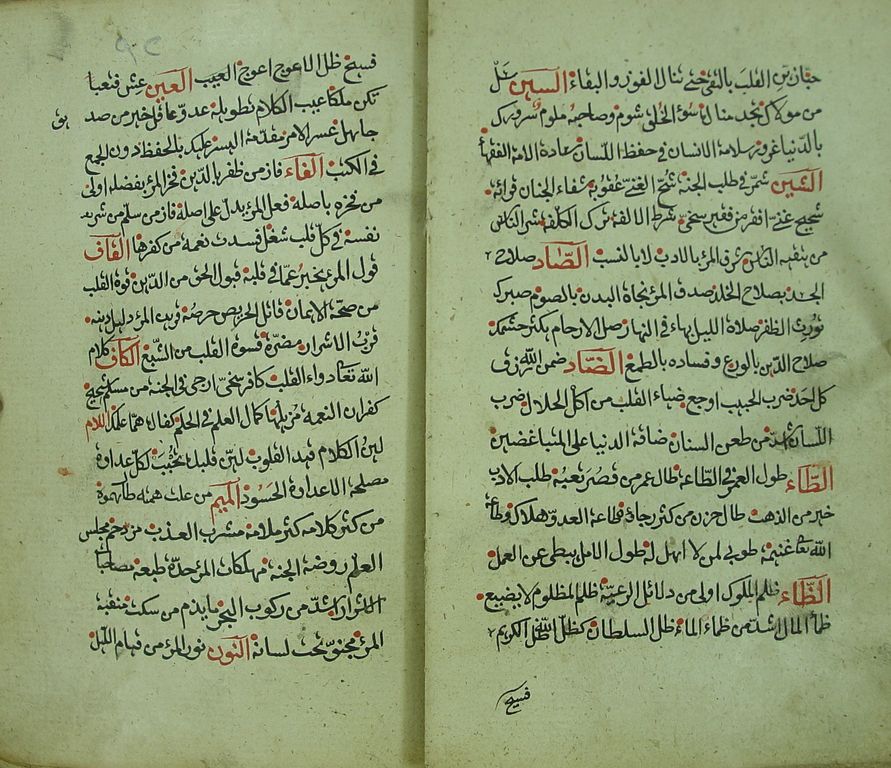 من القلب بالتقى حتى تنال الفوز والبقاء السين سل
من مولاك تجد مناك سوء الخلق شوم وصاحبه ملوم سرورك
بالدنيا غرور سلامة الانسان في حفظ اللسان سادة الامة الفقهاء
الشين شمر في طلب الجنة شح الغني عقوبة شفاء الجنان قرائة
شحيح غني افقر من فقير سخي شرط الالفة ترك الكلفة شر الناس
من يتقيه الناس شرف المرء بالادب لا بالنسب الصاد صلاح
الجسد بصلاح الخلد صدق المرء نجاة البدن بالصوم صبرك
تورث الظفر صلاة الليل بهاء في النهار صل الارحام يكثر حشمك
صلاح الدين بالورع وفساده بالطمع الضاد ضمن الله رزق
كل احد ضرب الحبيب اوجع ضياء القلب من اكل الحلال ضرب
اللسان اشد من طعن السنان ضاقة الدنيا على المتباغضين
الطاء طول العمر في الطاعة طال عمر من قصر تعبه طلب الادب
خير من الذهب طال حزن من كثر رجاؤه طاعة العدو هلاك وطاعة
الله تعالى غنيمة طوبى لمن لا اهل له طول الامل يبطي عن العمل
الظاء ظلم الملوك اولى من دلائل الرعية ظلم المظلوم لا يضيع
ظمأ المال اشد من ظماء الماء ظل السلطان كظل الله ظل الكريم
فسيح
فسيح ظل الاعوج اعوج العيب العين عش قنعا
تكن ملكا عيب الكلام تطويله عدو عاقل خير من صد
يق
جاهل عسر الامر مقدمة اليسر عليك بالحفظ دون الجمع
في الكتب الفاء فاز من ظفر بالدين فخر المرء بفضله اولى
من فخره باصله فعل المرء يدل على اصله فاز من سلم من شر
نفسه في كل قلب شغل فسدت نعمة من كفرها القاف
قول المرء يخبر عما في قلبه قبول الحق من الدين قوة القلب
من صحة الايمان قاتل الحريص حرصه قرين المرء دليل دينه
قرب الاشرار مضرة قسوة القلب من الشبع الكاف كلام
الله تعالى دواء القلب كافر سخي ارجى في الجنة من مسلم شحيح
كفران النعمة مزيلها كمال العلم في الحلم كفاك هما علمك اللام
لين الكلام قيد القلوب لين قلبك تحبب لكل عداوة
مصلحة الا عداوة الحسود الميم من علت همته طال همه
من كثر كلامه كثر ملامه مشرب العذب مزدحم مجلس
العلم روضة الجنة مهلكات المرء حدة طبعه مصاحبة
الاشرار اشد من ركوب البحر ما يذم من سكت منقبة
المرء مخبو تحت لسانه النون نور المرء من قيام الليل